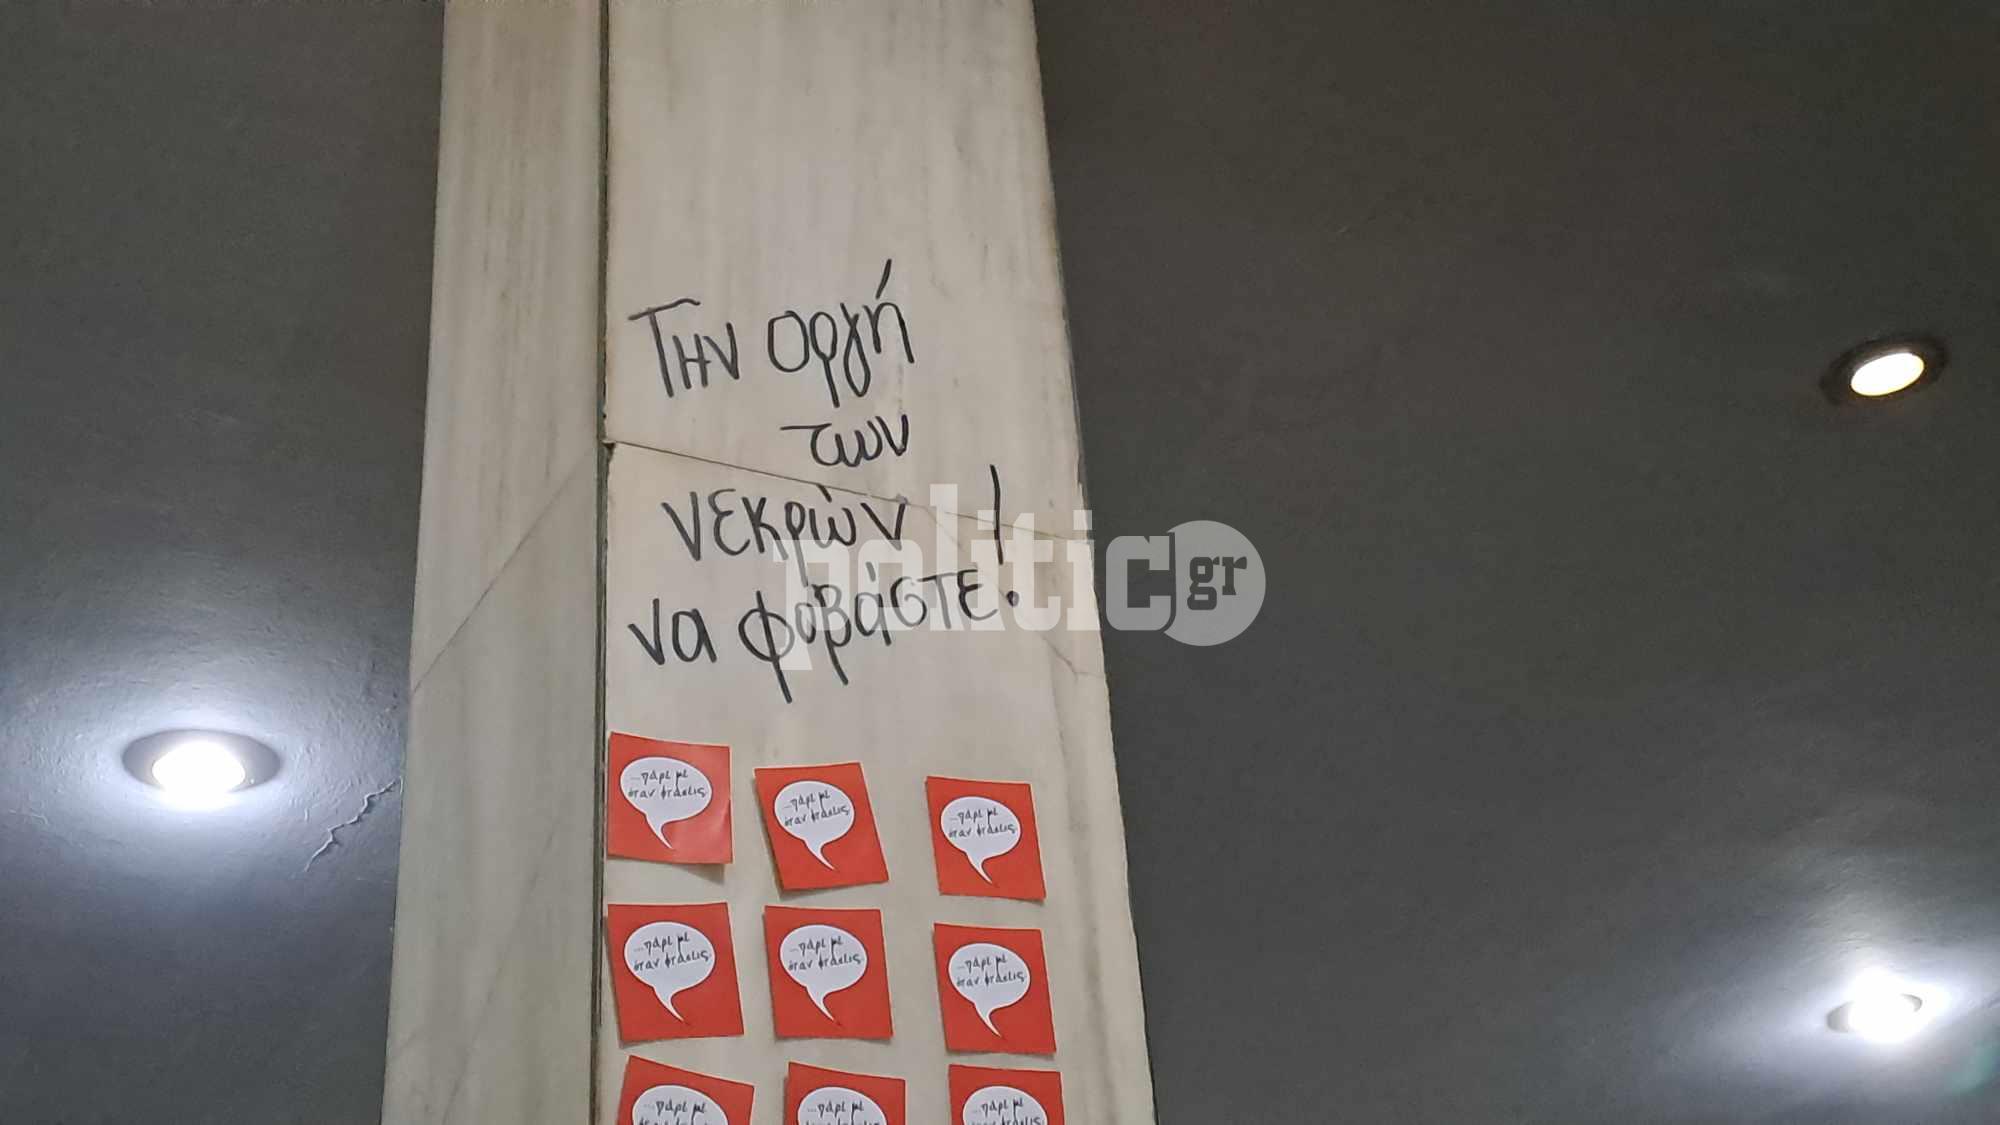 Την οργή
των
νεκρών
να φοβάστε!
politic gr
...πάρε με
όταν φτάσεις
...πάρε με
όταν φτάσεις
...πάρε με
όταν φτάσεις
...πάρε με
όταν φτάσεις
...πάρε με
όταν φτάσεις
...πάρε με
όταν φτάσεις
...πάρε με
...πάρε με
...πάρε με